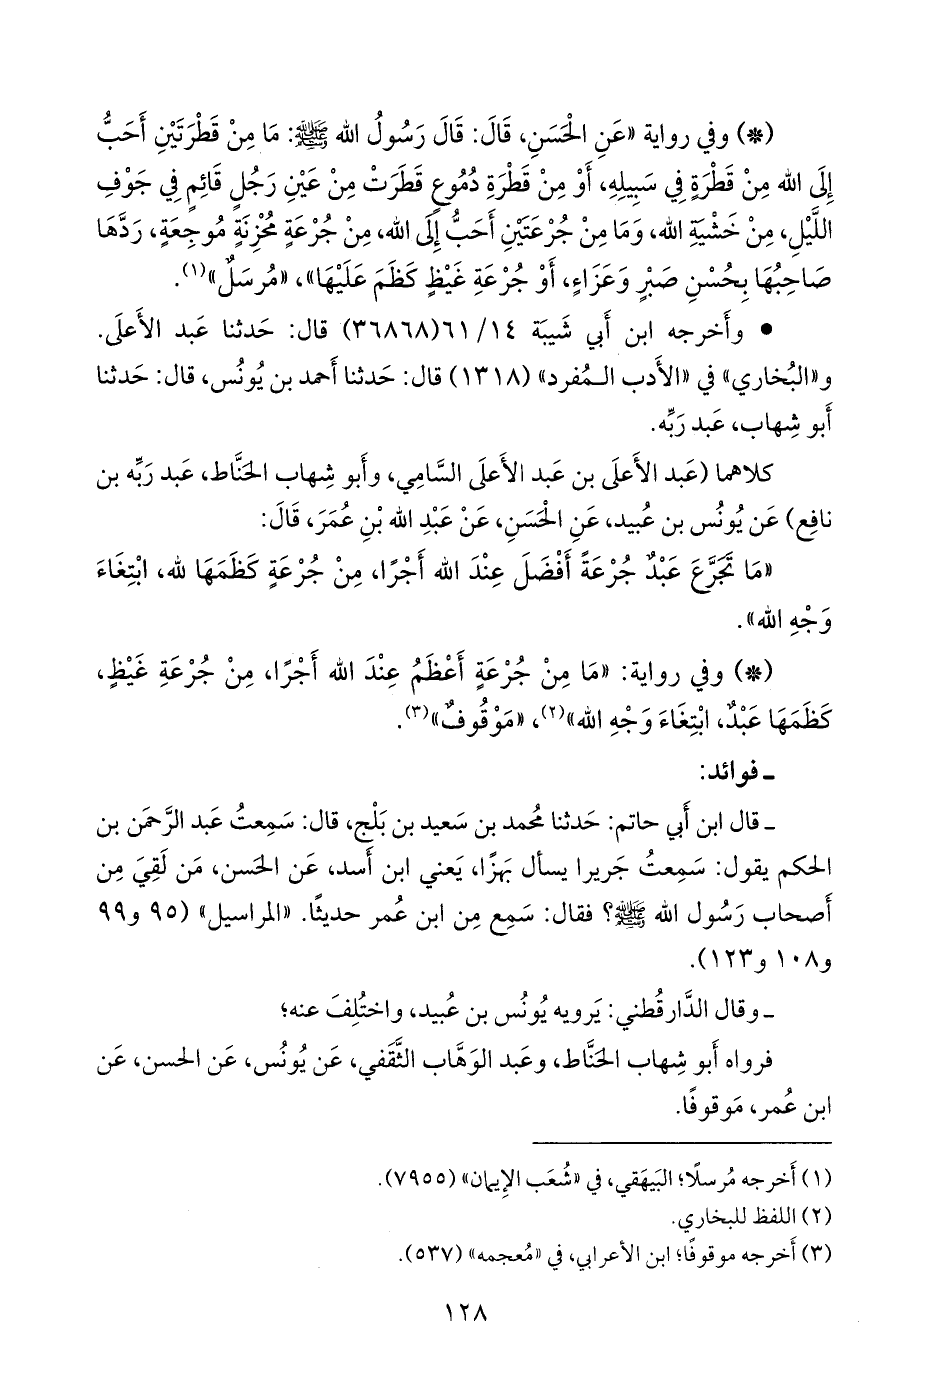 (*) وفي رواية «عَنِ الْحَسَنِ، قَالَ: قَالَ رَسُولُ الله ﷺ: مَا مِنْ قَطْرَتَيْنِ أَحَبُّ
إِلَى الله مِنْ قَطْرَةٍ فِي سَبِيلِهِ، أَوْ مِنْ قَطْرَةِ دُمُوعٍ قَطَرَتْ مِنْ عَيْنِ رَجُلٍ قَائِمٍ فِي جَوْفِ
اللَّيْلِ، مِنْ خَشْيَةِ الله، وَمَا مِنْ جُرْعَتَيْنِ أَحَبُّ إِلَى الله، مِنْ جُرْعَةٍ مُحْزِنَةٍ مُوجِعَةٍ، رَدَّهَا
صَاحِبُهَا بِحُسْنِ صَبْرٍ وَعَزَاءٍ، أَوْ جُرْعَةِ غَيْظٍ كَظَمَ عَلَيْهَا»، «مُرسَلٌ»(١).
• وأَخرجه ابن أبي شَيبَة ١٤/ ٦١(٣٦٨٦٨) قال: حَدثنا عَبد الأَعلَى.
و«البُخاري» في «الأدب المُفرد» (١٣١٨) قال: حَدثنا أَحمد بن يُونُس، قال: حَدثنا
أَبو شِهاب، عَبد رَبِّه.
كلاهما (عَبد الأَعلَى بن عَبد الأَعلَى السَّامِي، وأَبو شِهاب الحَنَّاط، عَبد رَبِّه بن
نافِع) عَن يُونُس بن عُبيد، عَنِ الحَسَنِ، عَنْ عَبْدِ الله بْنِ عُمَرَ، قَالَ:
«مَا تَجَرَّعَ عَبْدٌ جُرْعَةً أَفْضَلَ عِنْدَ الله أَجْرًا، مِنْ جُرْعَةٍ كَظَمَهَا لله، ابْتِغَاءَ
وَجْهِ الله».
(*) وفي رواية: «مَا مِنْ جُرْعَةٍ أَعْظَمُ عِنْدَ الله أَجْرًا، مِنْ جُرْعَةِ غَيْظٍ،
كَظَمَهَا عَبْدٌ، ابْتِغَاءَ وَجْهِ الله»(٢)، «مَوْقُوفٌ»(٣).
ـ فوائد:
ـ قال ابن أَبي حاتم: حَدثنا مُحمد بن سَعيد بن بَلْج، قال: سَمِعتُ عَبد الرَّحمَن بن
الحكم يقول: سَمِعتُ جَريرا يسأل بَهزًا، يَعني ابن أَسد، عَن الحَسن، مَن لَقِيَ مِن
أَصحاب رَسُول الله ﷺ؟ فقال: سَمِع مِن ابن عُمر حديثًا. «المراسيل» (٩٥ و٩٩
و١٠٨ و١٢٣).
ـ وقال الدَّارقُطني: يَرويه يُونُس بن عُبيد، واختُلِفَ عنه؛
فرواه أَبو شِهاب الحَنَّاط، وعَبد الوَهَّاب الثَّقَفي، عَن يُونُس، عَن الحسن، عَن
ابن عُمر، مَوقوفًا.
(١) أَخرجه مُرسلًا؛ البَيهَقي، في «شُعَب الإِيمان» (٧٩٥٥).
(٢) اللفظ للبخاري.
(٣) أَخرجه موقوفًا؛ ابن الأعرابي، في «مُعجمه» (٥٣٧).
١٢٨